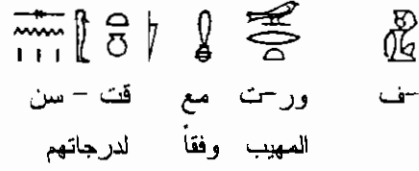 -ف ور-ت مع قت - سن
المهيب وفقاً لدرجاتهم